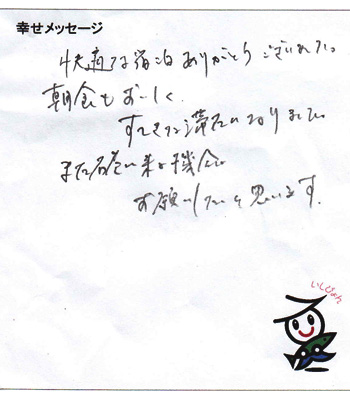 幸せメッセージ
快適な宿泊ありがとうございました。
朝食もおいしく、
すてきな滞在になりました。
また石巻に来る機会に
お願いしたいと思います。
いしぴょん